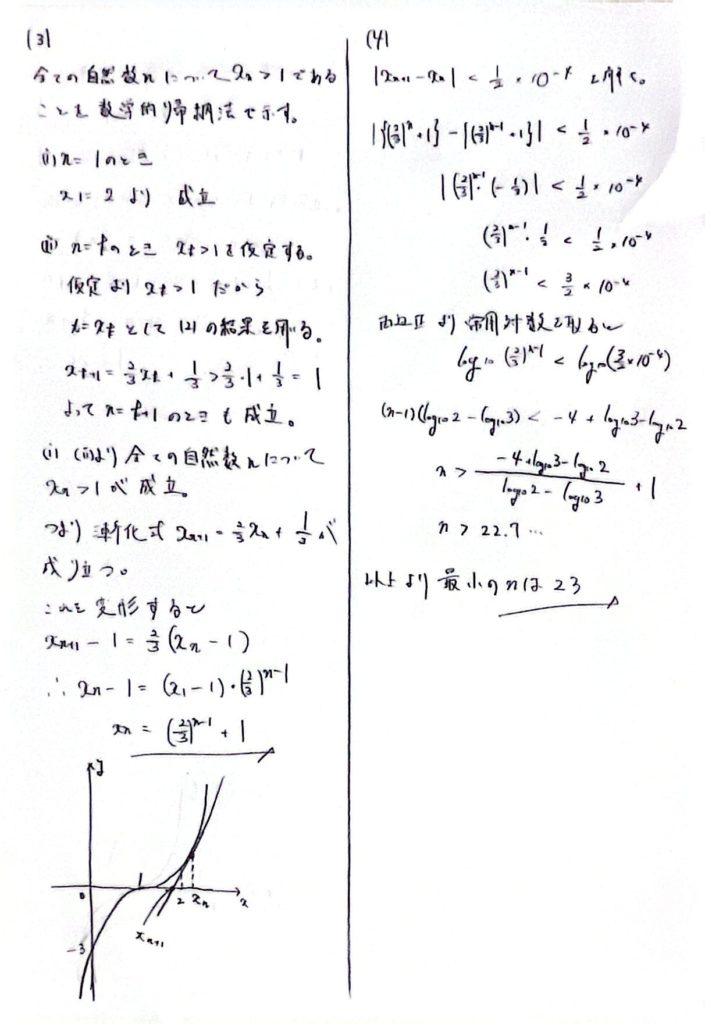 (3)
全ての自然数nについてxn>1である
ことを数学的帰納法で示す。
(i) n=1のとき
x1=2より 成立
(ii) n=kのとき xk>1を仮定する。
仮定より xk>1 だから
t=xkとして(2)の結果を用いる。
xk+1=2/3xk+1/3>2/3・1+1/3=1
よってn=k+1のときも成立。
(i)(ii)より全ての自然数nについて
xn>1が成立。
つまり漸化式 xn+1=2/3xn+1/3が
成り立つ。
これを変形すると
xn+1-1=2/3(xn-1)
∴ xn-1=(x1-1)・(2/3)^n-1
xn=(2/3)^n-1+1
y
1
0
2
xn
x
xn+1
-3
(4)
|xn+1-xn|<1/2×10^-4 を解く。
|{(2/3)^n+1}-{(2/3)^n-1+1}|<1/2×10^-4
|(2/3)^n-1・(-1/3)|<1/2×10^-4
(2/3)^n-1・1/3<1/2×10^-4
(2/3)^n-1<3/2×10^-4
両辺正より常用対数を取ると
log10(2/3)^n-1<log10(3/2×10^-4)
(n-1)(log10 2-log10 3)<-4+log10 3-log10 2
n>(-4+log10 3-log10 2)/(log10 2-log10 3)+1
n>22.7…
以上より 最小のnは23